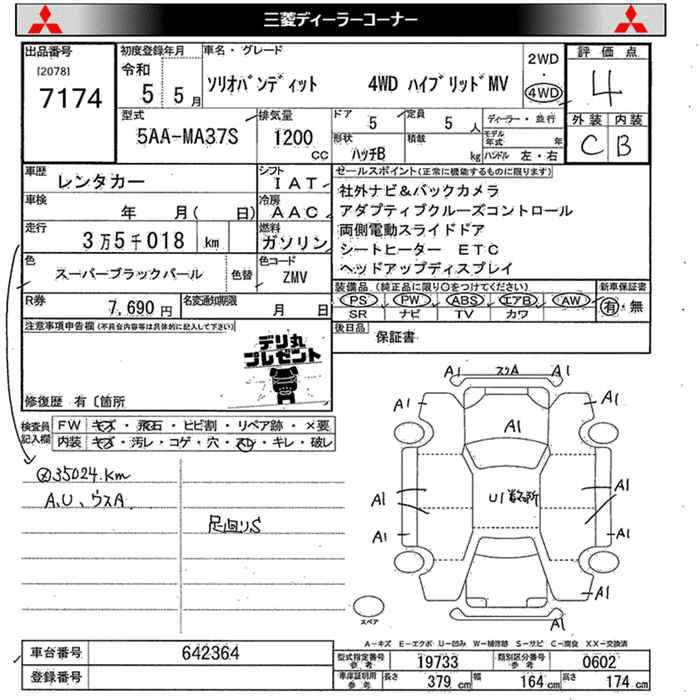 三菱ディーラーコーナー
出品番号
[2078]
7174
初度登録年月
令和
5 5月
車名・グレード
ソリオバンディット 4WD ハイブリッドMV
2WD
・
4WD
評価点
4
外装 内装
C B
型式
5AA-MA37S
排気量
1200 cc
ドア
5
定員
5 人
形状
ハッチB
積載
kg
ディーラー・並行
モデル年式 年
ハンドル 左・右
車歴
レンタカー
シフト
IAT
車検
年 月( 日)
冷房
AAC
走行
3万5千018 km
燃料
ガソリン
色
スーパーブラックパール
色替
色コード
ZMV
R券
7,690円
名変通知期限
月 日
セールスポイント(正常に機能するものに限ります)
社外ナビ&バックカメラ
アダプティブクルーズコントロール
両側電動スライドドア
シートヒーター ETC
ヘッドアップディスプレイ
装備品 (純正品に限り○をつけてください)
PS PW ABS エアB AW
SR ナビ TV カワ
新車保証書
有・無
後日品
保証書
注意事項申告欄(不具合内容等は具体的に記入して下さい)
デリ丸
プレゼント
修復歴 有〔箇所
検査員
記入欄
FW キズ・飛石・ヒビ割・リペア跡・×要
内装 キズ・汚レ・コゲ・穴・スレ・キレ・破レ
35024.km
A、U、ウスA
足回りS
A1 スリA A1
A1 A1
A1
A1 U1数ヶ所 A1
A1 A1
A1 A1
スペア
A-キズ E-エクボ U-凹み W-補修跡 S-サビ C-腐食 XX-交換済
車台番号
642364
登録番号
型式指定番号
参考
19733
類別区分番号
参考
0602
車庫証明用
参考
長さ
379 cm
幅
164 cm
高さ
174 cm